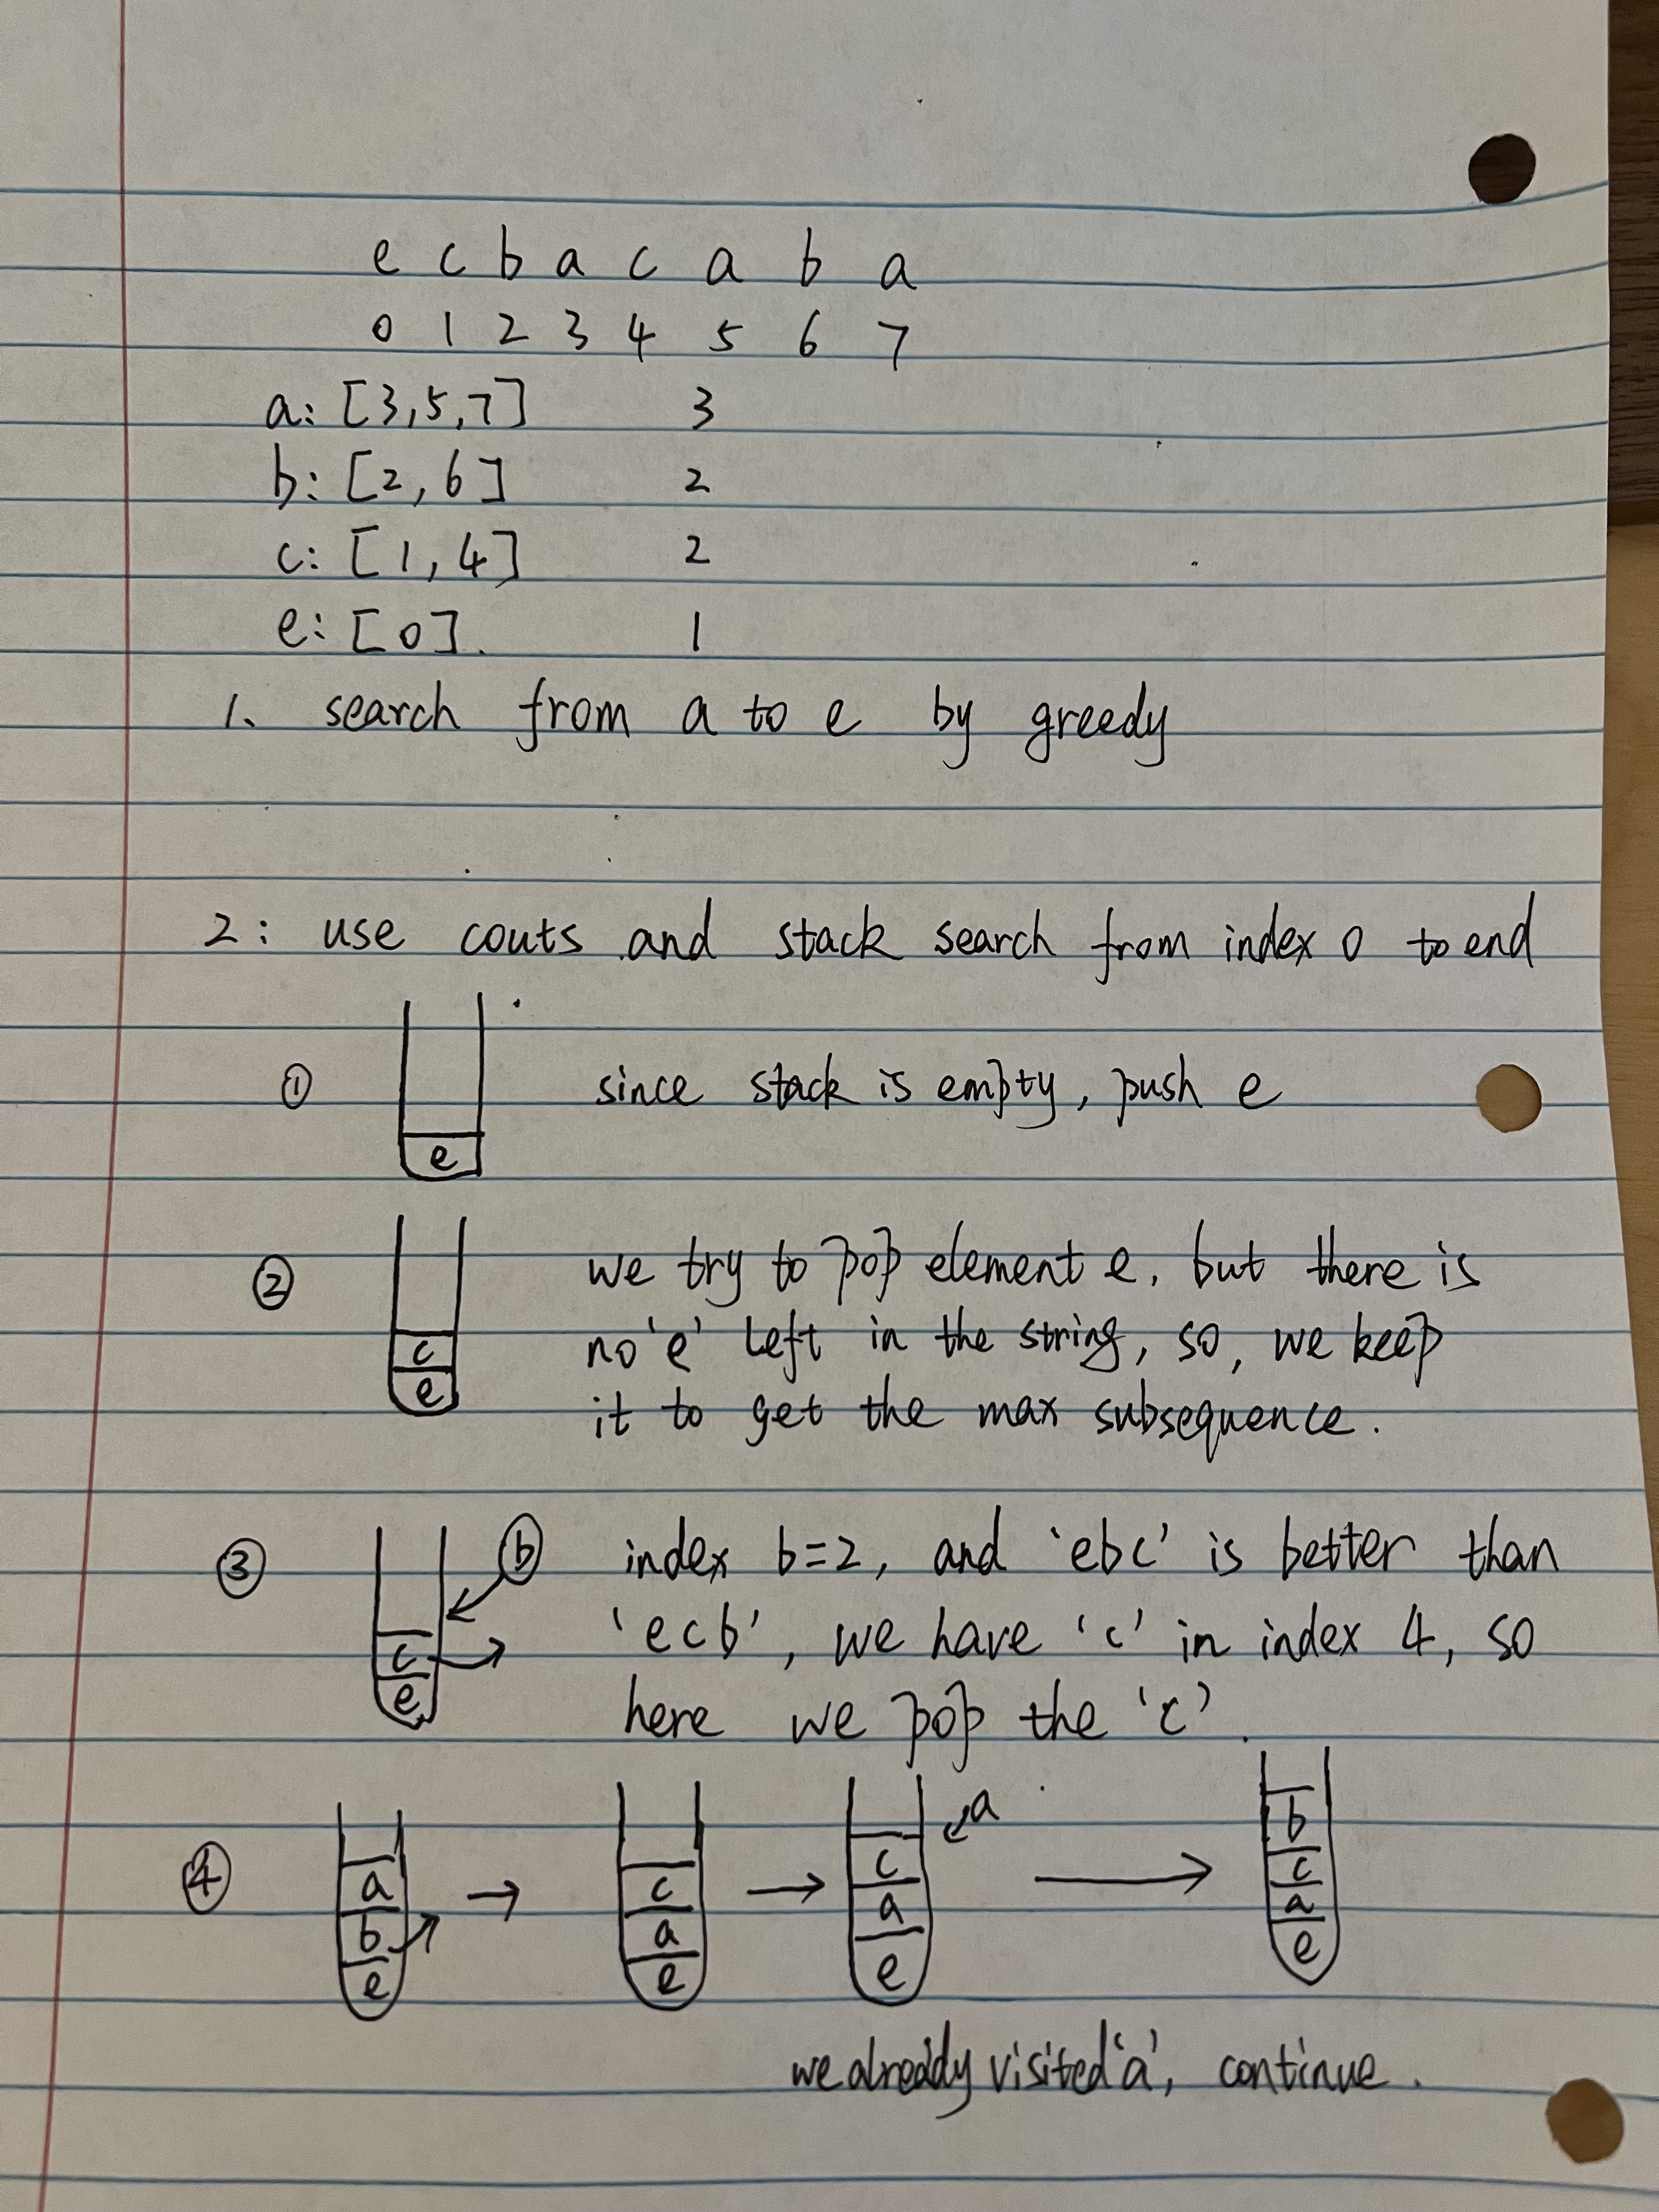 e c b a c a b a
0 1 2 3 4 5 6 7
a: [3,5,7] 3
b: [2,6] 2
c: [1,4] 2
e: [0]. 1
1. search from a to e by greedy
2: use couts and stack search from index 0 to end
① e since stack is empty, push e
② we try to pop element e, but there is
c no 'e' left in the string, so, we keep
e it to get the max subsequence.
③ b index b=2, and 'ebc' is better than
c 'ecb', we have 'c' in index 4, so
e here we pop the 'c'.
④ a b e → c a e → c a e a → b c a e
we already visited 'a', continue.